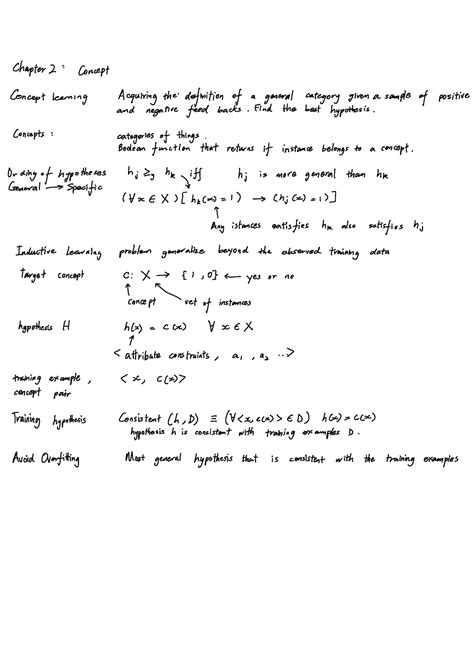 Chapter 2 : Concept
Concept learning Acquiring the definition of a general category given a sample of positive
and negative feed backs . Find the best hypothesis .
Concepts : categories of things .
Boolean function that returns if instance belongs to a concept .
Or ding of hypotheses hj ≥g hk iff hj is more general than hk
General → Specific (∀x ∈ X) [ hk(x) = 1) → (hj(x) = 1)]
Any istances satisfies hk also satisfies hj
Inductive learning problem generalize beyond the observed training data
Target concept C: X → {1, 0} ← yes or no
concept set of instances
hypothesis H h(x) = c(x) ∀ x ∈ X
< attribute constraints , a1 , a2 ...>
training example , < x, c(x)>
concept pair
Training hypothesis Consistent (h, D) ≡ (∀<x, c(x)> ∈ D) h(x) = c(x)
hypothesis h is consistent with training examples D .
Avoid Overfitting Most general hypothesis that is consistent with the training examples